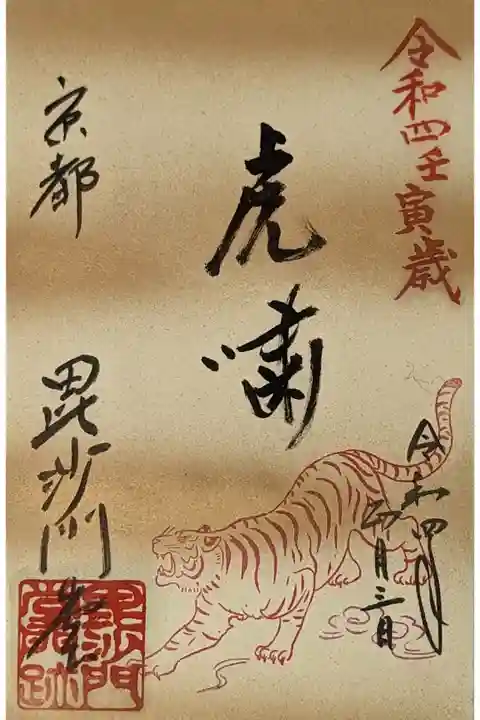 令和四壬寅歳
令和四年
月三日
虎嘯
京都
毘沙門堂
毘沙門
堂跡